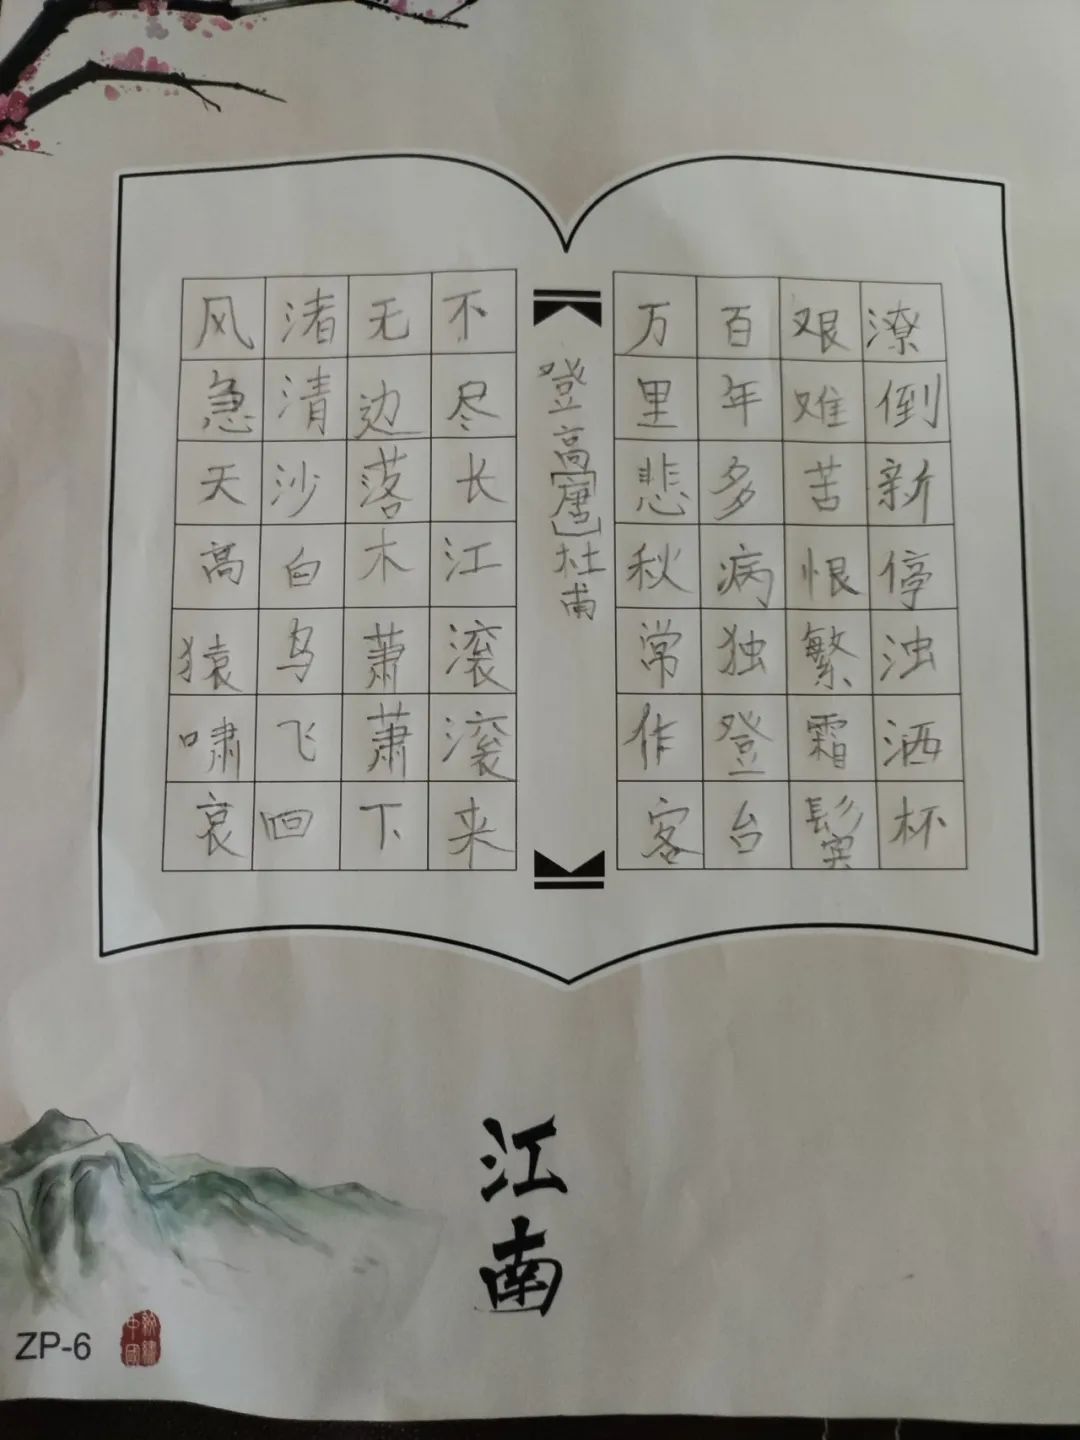 风急天高猿啸哀
渚清沙白鸟飞回
无边落木萧萧下
不尽长江滚滚来
登高[唐]杜甫
万里悲秋常作客
百年多病独登台
艰难苦恨繁霜鬓
潦倒新停浊洒杯
江南
ZP-6
中國